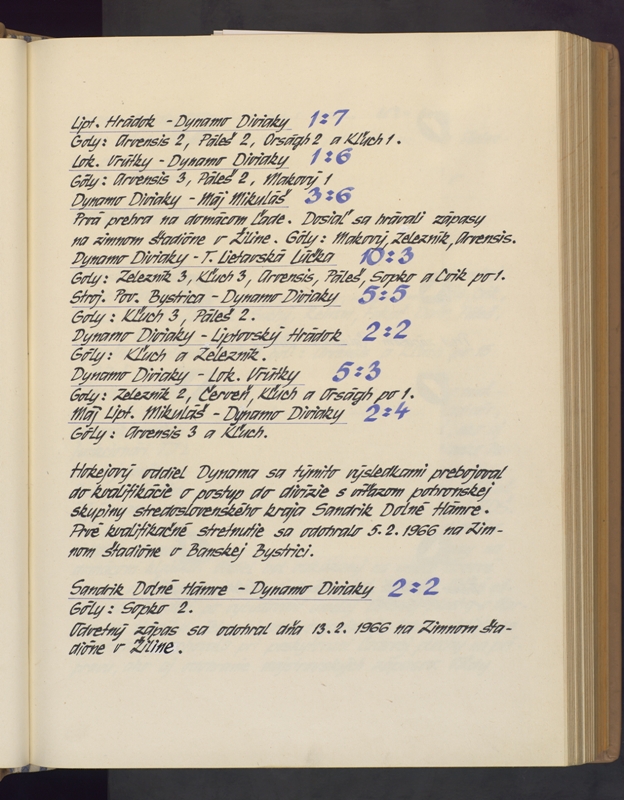 Lipt. Hrádok - Dynamo Diviaky 1:7
Góly: Arvensis 2, Páleš 2, Orságh 2 a Kľuch 1.
Lok. Vrútky - Dynamo Diviaky 1:6
Góly: Arvensis 3, Páleš 2, Makový 1
Dynamo Diviaky - Máj Mikuláš 3:6
Prvá prehra na domácom ľade. Dosiaľ sa hrávali zápasy
na zimnom štadióne v Žiline. Góly: Makový, Železník, Arvensis.
Dynamo Diviaky - T. Lietavská Lúčka 10:3
Góly: Železník 3, Kľuch 3, Arvensis, Páleš, Sopko a Cvik po 1.
Stroj. Pov. Bystrica - Dynamo Diviaky 5:5
Góly: Kľuch 3, Páleš 2.
Dynamo Diviaky - Liptovský Hrádok 2:2
Góly: Kľuch a Železník.
Dynamo Diviaky - Lok. Vrútky 5:3
Góly: Železník 2, Červeň, Kľuch a Orságh po 1.
Máj Lipt. Mikuláš - Dynamo Diviaky 2:4
Góly: Arvensis 3 a Kľuch.
Hokejový oddiel Dynama sa týmito výsledkami prebojoval
do kvalifikácie o postup do divízie s víťazom pohronskej
skupiny stredoslovenského kraja Sandrik Dolné Hámre.
Prvé kvalifikačné stretnutie sa odohralo 5.2.1966 na Zim-
nom štadióne v Banskej Bystrici.
Sandrik Dolné Hámre - Dynamo Diviaky 2:2
Góly: Sopko 2.
Odvetný zápas sa odohral dňa 13.2. 1966 na Zimnom šta-
dióne v Žiline.